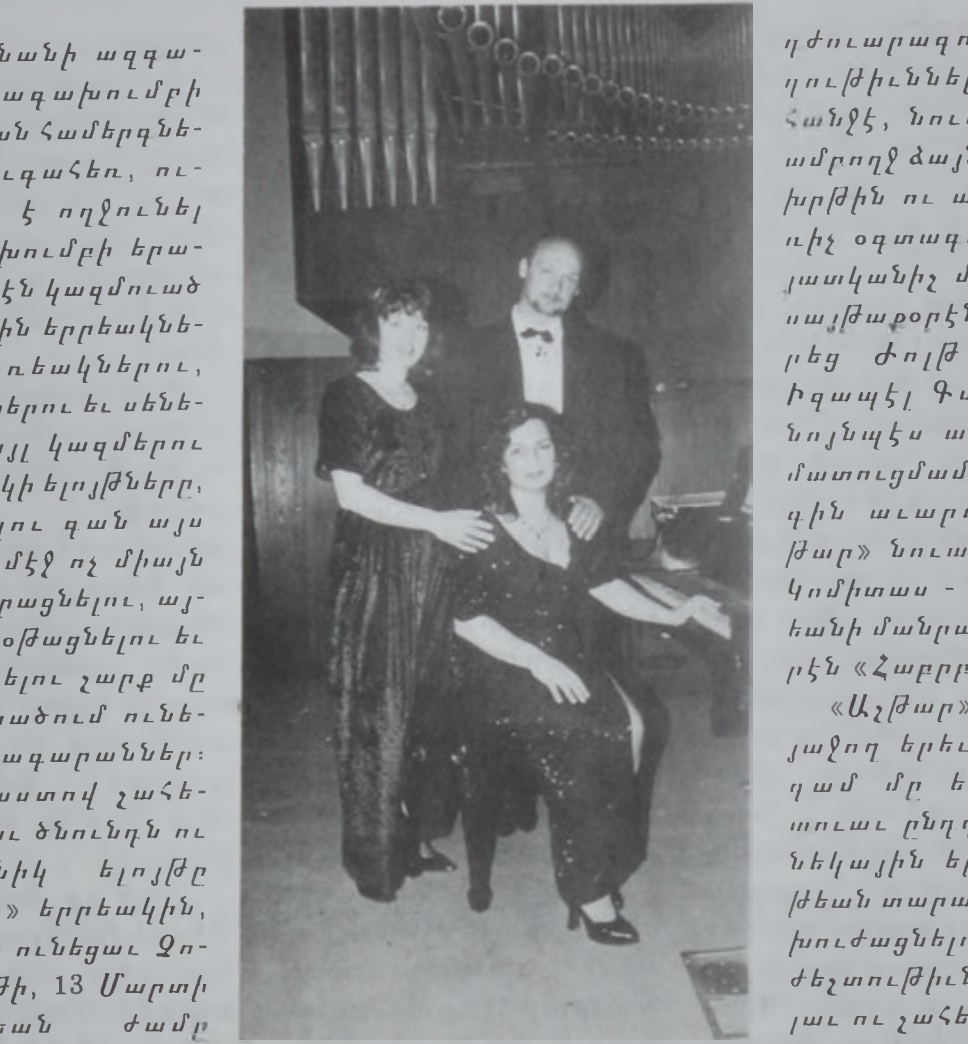 նանի ազգա-
ագախումբի
ան համերգնե-
ւգահեռ, ու-
է ողջունել
խումբի երա-
էն կազմուած
ին երրեակնե-
ռեակներու,
ներու եւ սենե-
այլ կազմերու
կի ելոյթները,
լու գան այս
մէջ ոչ միայն
րացնելու, այ-
օթացնելու եւ
ելու շարք մը
ածում ունե-
ազարաններ։
աստով շահե-
ւ ծնունդն ու
նիկ ելոյթը
» երրեակին,
ունեցաւ Չո-
թի, 13 Մարտի
եան ժամը
դժուարազ
ղութիւննել
հանջէ, նու
ամբողջ ձայ
խրթին ու ա
ւիչ օգտագ
յատկանիշ մ
սայթաքօրէն
րեց Ժոլթ
Իզապէլ Գ
նոյնպէս ա
մատուցմամ
գին աւար
թար» նուա
Կոմիտաս -
եանի մանրա
րէն «Հաբրբ
«Աշթար»
յաջող երեւ
գամ մը ե
տուաւ ընդ
նեկային ել
թեան տարա
խուժացնել
ժեշտութիւն
լաւ ու շահե